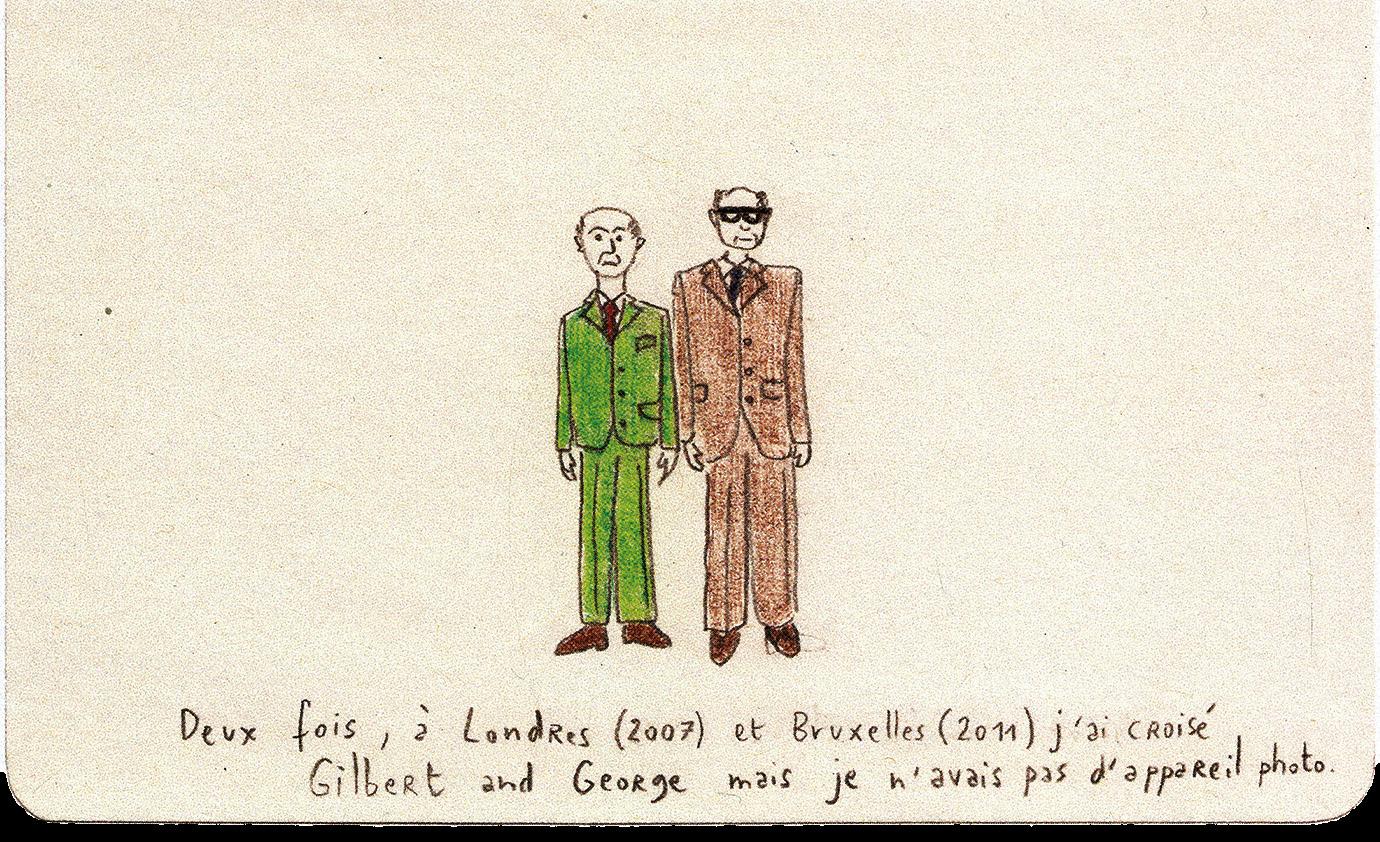 Deux fois, à Londres (2007) et Bruxelles (2011) j'ai croisé
Gilbert and George mais je n'avais pas d'appareil photo.